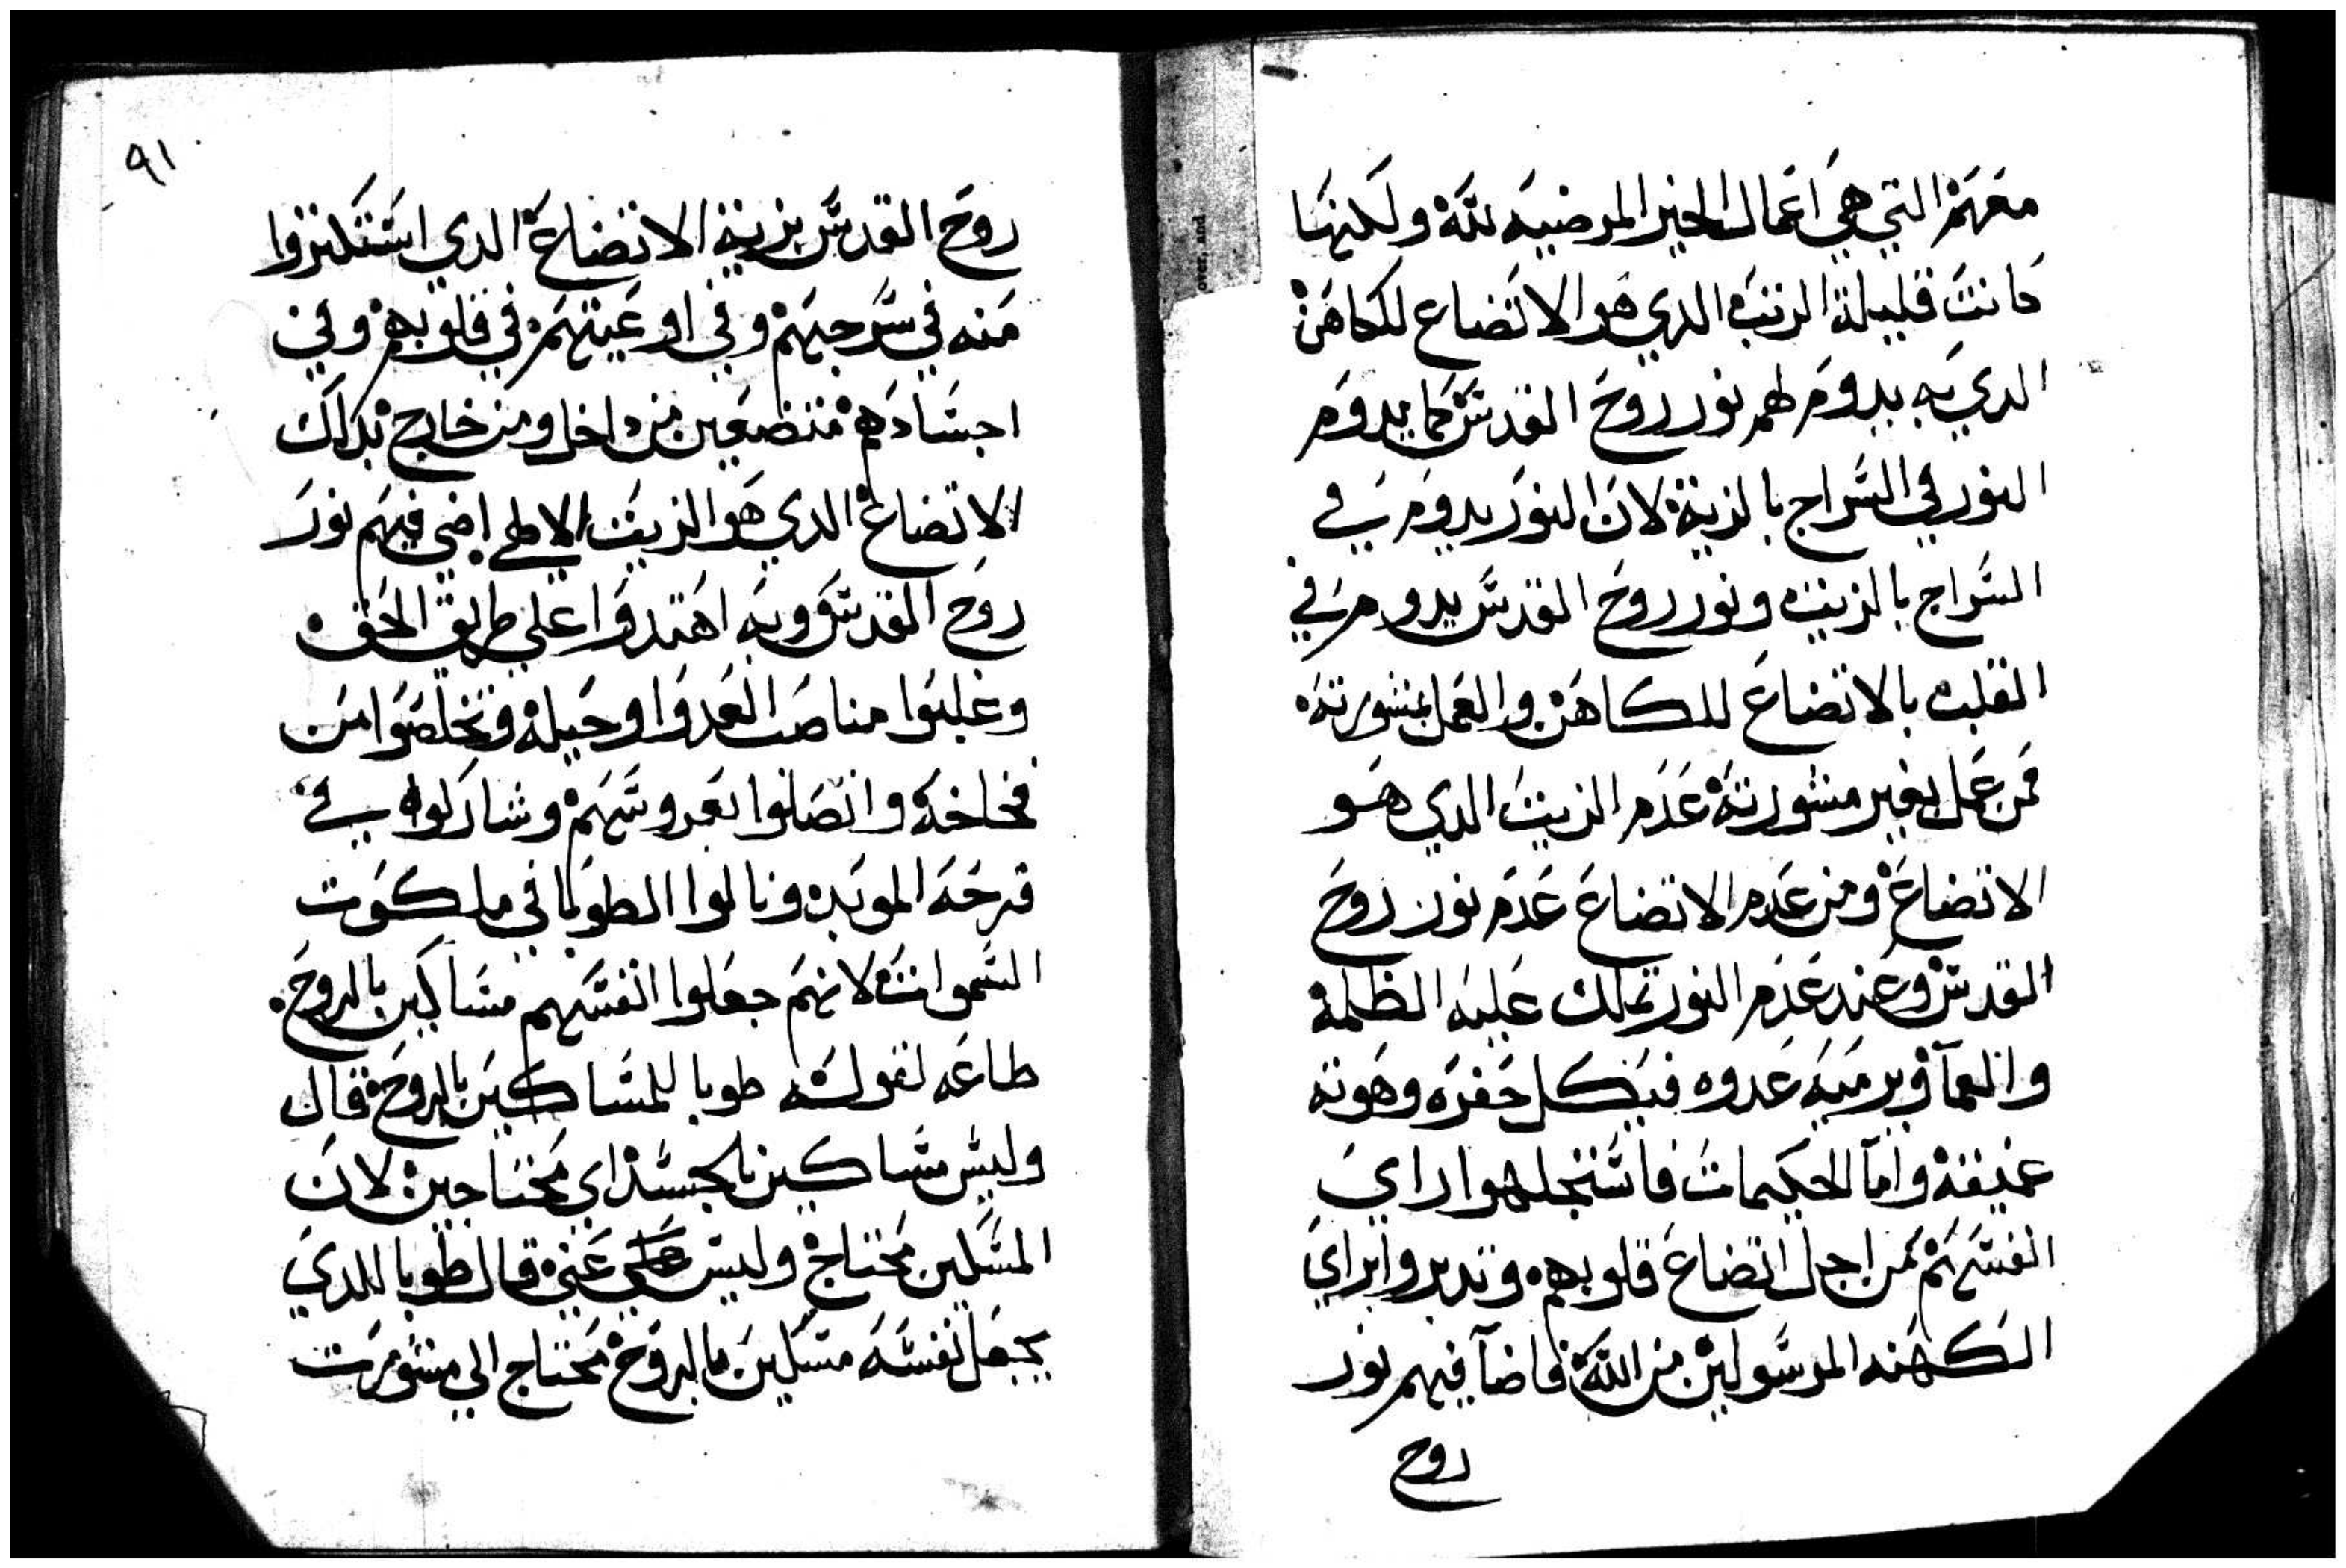 معهم التي هي اعمال الخير المرضيه لله ولكنها
كانت قليلة الزيت الدي هو الاتضاع للكاهن
الدي به يدوم لهم نور روح القدس كما يدوم
النور في السراج بالزيت لان النور يدوم في
السراج بالزيت ونور روح القدس يدوم في
القلب بالاتضاع للكاهن والعمل بمشورته
فمن عمل بغير مشورته عدم الزيت الدي هو
الاتضاع ومن عدم الاتضاع عدم نور روح
القدس وعند عدم النور تملك عليه الظلمة
والعمآ ويرميه عدوه في كل حفره وهوته
عميقة وامآ الحكيمات فاستجهلوا راي
انفسهم من اجل اتضاع قلوبهم وتدبروا براي
الكهنه المرسولين من الله فاضآ فيهم نور
روح
٩١
روح القدس بزيت الاتضاع الدي استكتروا
منه في سرجهم وفي اوعيتهم في قلوبهم وفي
اجسادهم متضعين من داخل ومن خارج بداك
الاتضاع الدي هو الزيت الالاهي اضي فيهم نور
روح القدس وبه اهتدوا علي طريق الحق
وغلبوا مناصب العدوا وحيله وتخلصوا من
فخاخه واتصلوا بعروسهم وشاركوه في
فرحه الموبده ونالوا الطوبا في ملكوت
السموات لانهم جعلوا انفسهم مساكين بالروح
طاعه لقوله طوبا للمساكين بالروح قال
وليس مساكين بالجسد اي محتاجين لان
المسكين محتاج وليس غني قال طوبا للدي
يجعل نفسه مسكين بالروح محتاج الي مشورت